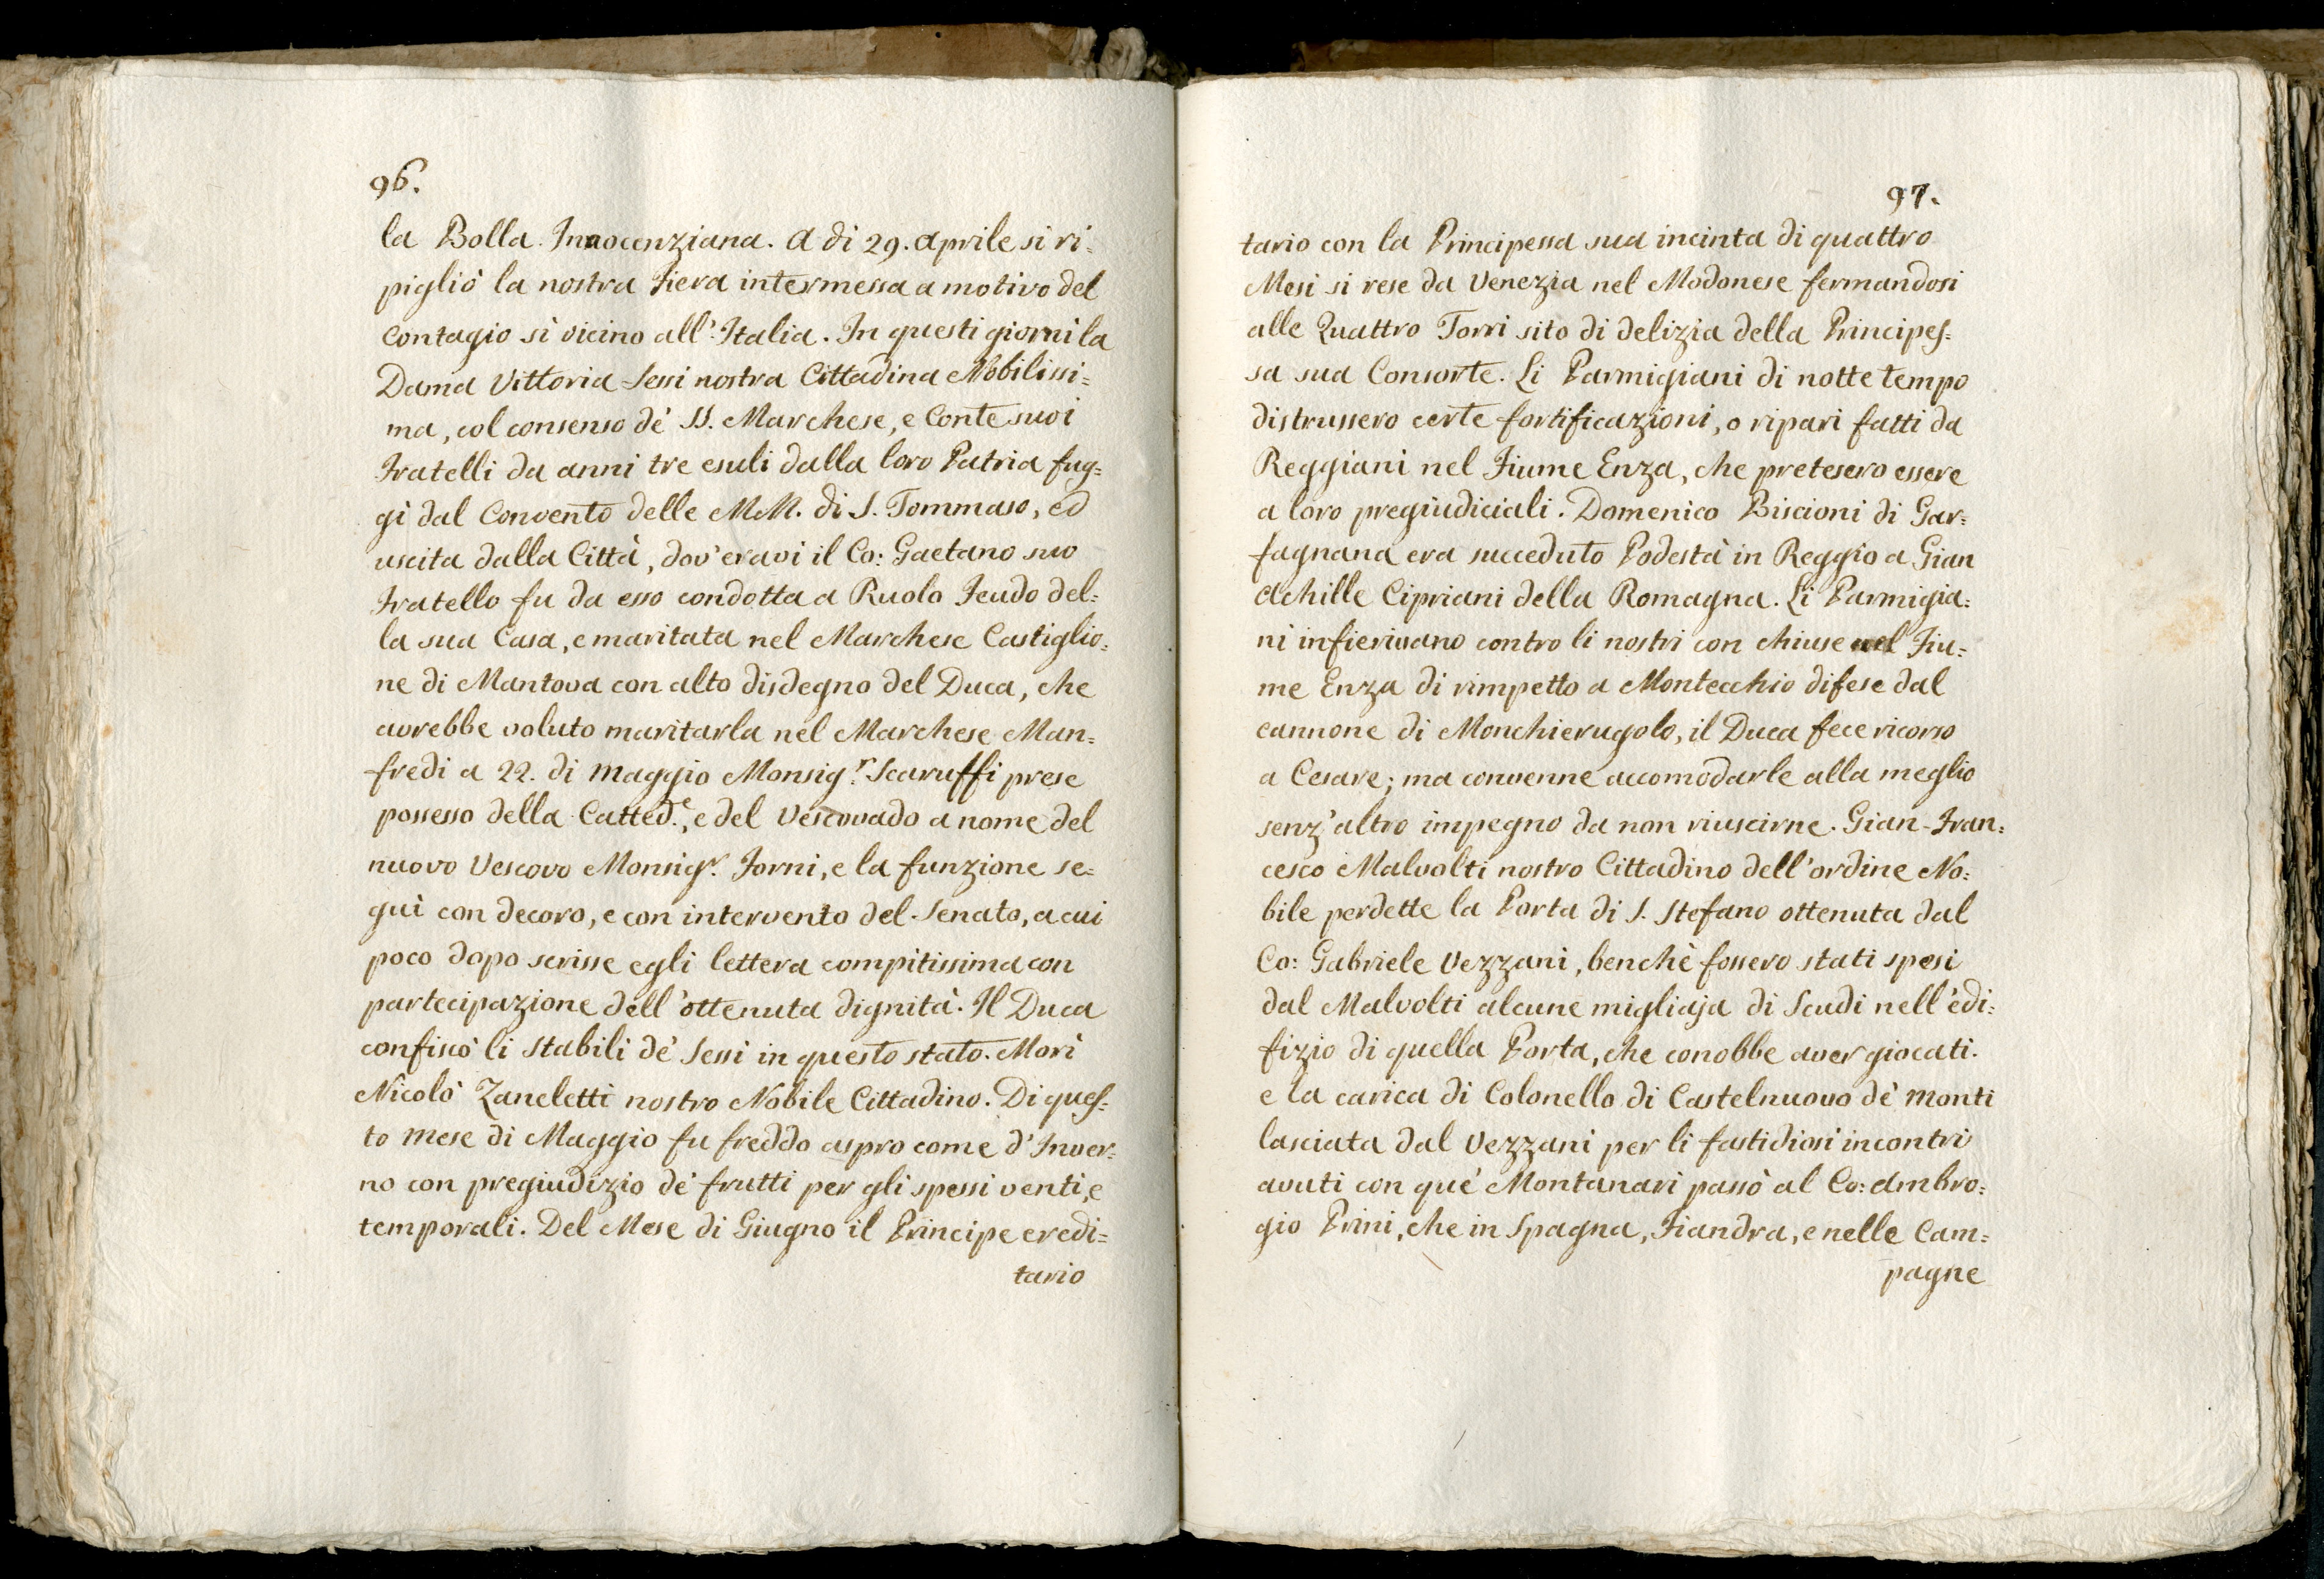 96.
la Bolla Innocenziana. A di 29. Aprile si ri=
pigliò la nostra Fiera intermessa a motivo del
Contagio sì vicino all'Italia. In questi giorni la
Dama Vittoria Sessi nostra Cittadina Nobilissi=
ma, col consenso de' SS. Marchese, e Conte suoi
Fratelli da anni tre esuli dalla loro Patria fug=
gì dal Convento delle MM. di S. Tommaso, ed
uscita dalla Città, dov'eravi il Co: Gaetano suo
Fratello fu da esso condotta a Ruolo Feudo del=
la sua Casa, e maritata nel Marchese Castiglio=
ne di Mantova con alto disdegno del Duca, che
avrebbe voluto maritarla nel Marchese Man=
fredi a 22. di Maggio Monsig.r Scaruffi prese
possesso della Catted.e, e del Vescovado a nome del
nuovo Vescovo Monsig.r Forni, e la funzione se=
guì con decoro, e con intervento del Senato, a cui
poco dopo scrisse egli lettera compitissima con
partecipazione dell'ottenuta dignità. Il Duca
confiscò li Stabili de' Sessi in questo stato. Morì
Nicolò Zaneletti nostro Nobile Cittadino. Di ques=
to Mese di Maggio fu freddo aspro come d'Inver=
no con pregiudizio de' frutti per gli spessi venti, e
temporali. Del Mese di Giugno il Principe eredi=
tario
97.
tario con la Principessa sua incinta di quattro
Mesi si rese da Venezia nel Modonese fermandosi
alle Quattro Torri sito di delizia della Principes=
sa sua Consorte. Li Parmigiani di notte tempo
distrussero certe fortificazioni, o ripari fatti da
Reggiani nel Fiume Enza, che pretesero essere
a loro pregiudiciali. Domenico Biscioni di Gar=
fagnana era succeduto Podestà in Reggio a Gian
Achille Cipriani della Romagna. Li Parmigia=
ni infierivano contro li nostri con chiuse nel Fiu=
me Enza di rimpetto a Montecchio difese dal
cannone di Monchierugolo, il Duca fece ricorso
a Cesare; ma convenne accomodarle alla meglio
senz'altro impegno da non riuscirne. Gian-Fran=
cesco Malvolti nostro Cittadino dell'ordine No=
bile perdette la Porta di S. Stefano ottenuta dal
Co: Gabriele Vezzani, benchè fossero stati spesi
dal Malvolti alcune migliaja di Scudi nell'edi=
fizio di quella Porta, che conobbe aver giocati.
e la carica di Colonello di Castelnuovo de' Monti
lasciata dal Vezzani per li fastidiosi incontri
avuti con que' Montanari passò al Co: Ambro=
gio Prini, che in Spagna, Fiandra, e nelle Cam=
pagne